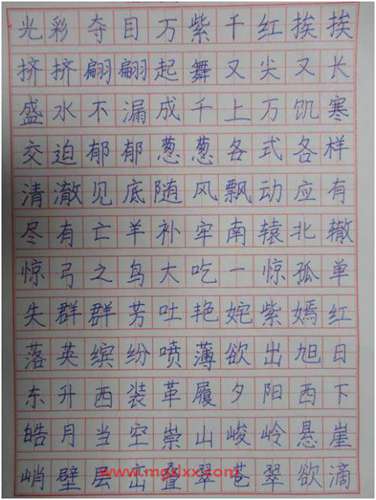 光彩夺目万紫千红挨挨
挤挤翩翩起舞又尖又长
盛水不漏成千上万饥寒
交迫郁郁葱葱各式各样
清澈见底随风飘动应有
尽有亡羊补牢南辕北辙
惊弓之鸟大吃一惊孤单
失群群芳吐艳姹紫嫣红
落英缤纷喷薄欲出旭日
东升西装革履夕阳西下
皓月当空崇山峻岭悬崖
峭壁层叠翠苍翠欲滴